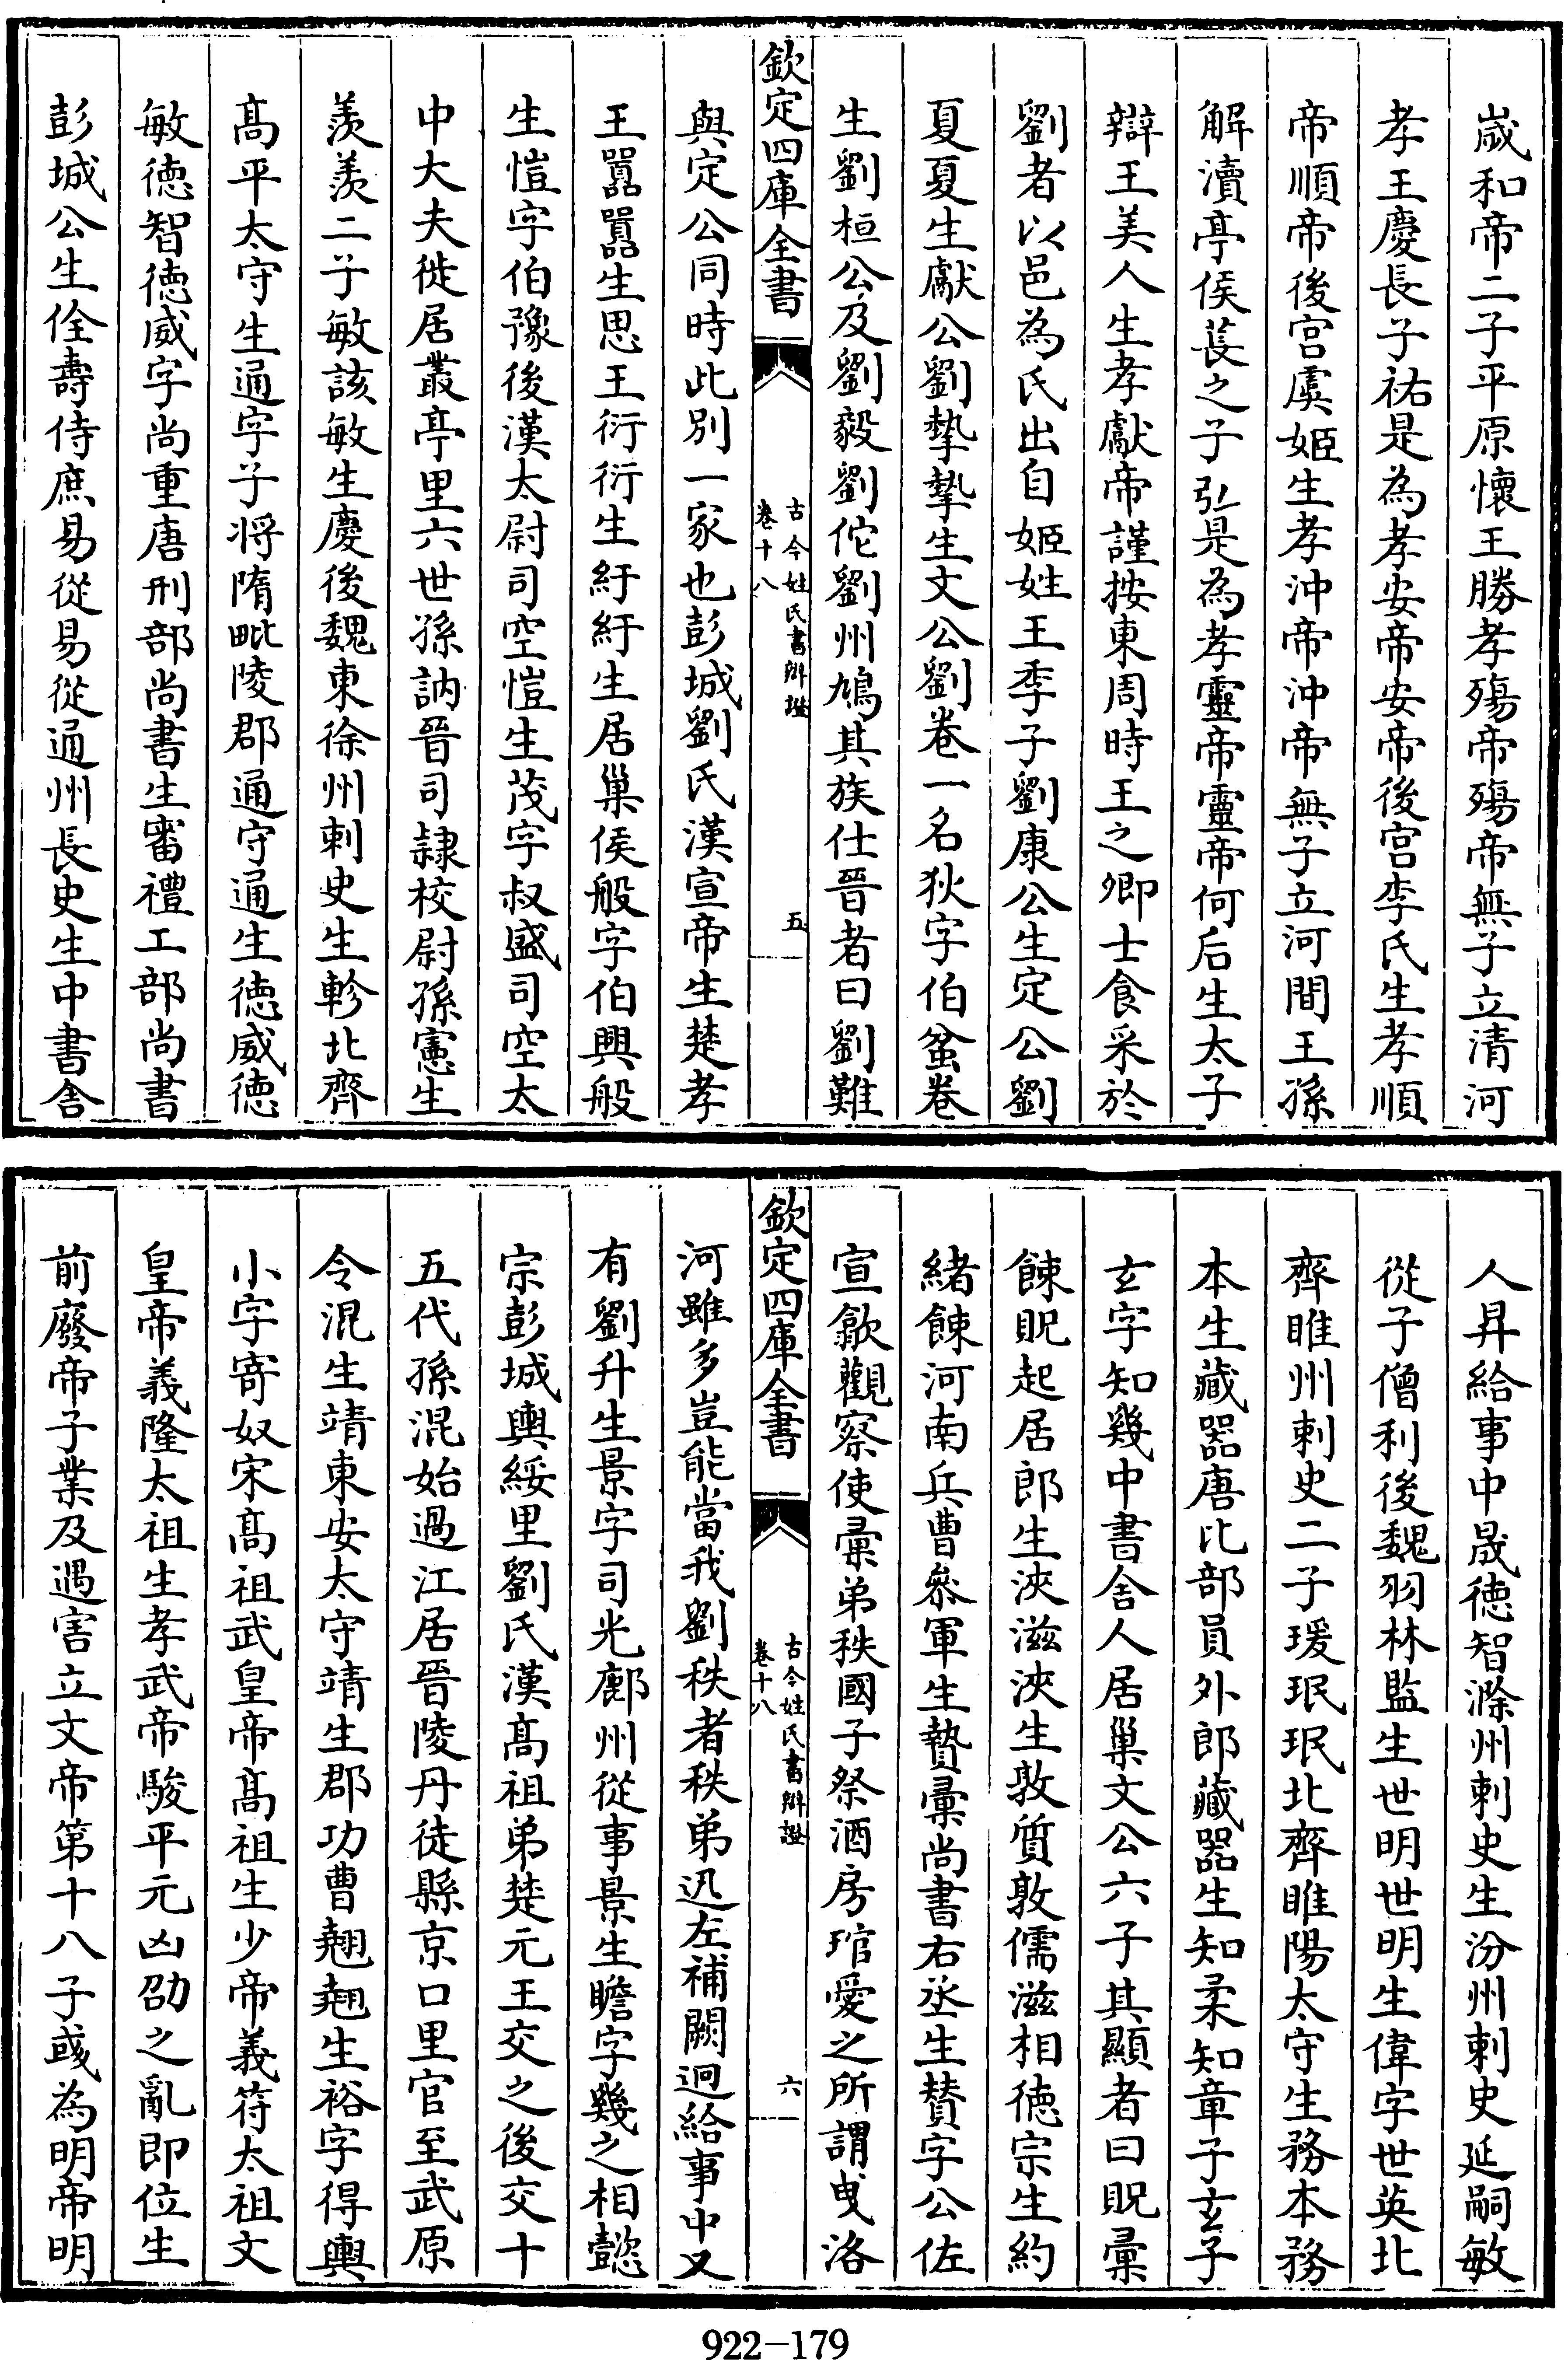 歳和帝二子平原懷王勝孝殤帝殤帝無子立清河
孝王慶長子祐是為孝安帝安帝後宫李氏生孝順
帝順帝後宫虞姬生孝沖帝沖帝無子立河間王孫
解瀆亭侯萇之子弘是為孝靈帝靈帝何后生太子
辯王美人生孝獻帝謹按東周時王之卿士食采於
劉者以邑為氏出自姬姓王季子劉康公生定公劉
夏夏生獻公劉摯摯生文公劉卷一名狄字伯蚠卷
生劉桓公及劉毅劉佗劉州鳩其族仕晉者曰劉難
欽定四庫全書
古今姓氏書辯證
卷十八
五
與定公同時此別一家也彭城劉氏漢宣帝生楚孝
王囂囂生思王衍衍生紆紆生居巢侯般字伯興般
生愷字伯豫後漢太尉司空愷生茂字叔盛司空太
中大夫徙居叢亭里六世孫訥晉司隷校尉孫憲生
羨羨二子敏該敏生慶後魏東徐州刺史生軫北齊
髙平太守生通字子将隋毗陵郡通守通生德威德
敏德智德威字尚重唐刑部尚書生審禮工部尚書
彭城公生佺壽侍庶易從易從通州長史生中書舍
人昇給事中晟德智滁州刺史生汾州刺史延嗣敏
從子僧利後魏羽林監生世明世明生偉字世英北
齊睢州刺史二子瑗珉珉北齊睢陽太守生務本務
本生藏器唐比部員外郎藏器生知柔知章子玄子
玄字知幾中書舍人居巢文公六子其顯者曰貺彚
餗貺起居郎生浹滋浹生敦質敦儒滋相德宗生約
緒餗河南兵曹叅軍生贄彚尚書右丞生賛字公佐
宣歙觀察使彚弟秩國子祭酒房琯愛之所謂曳洛
欽定四庫全書
古今姓氏書辯證
卷十八
六
河雖多豈能當我劉秩者秩弟迅左補闕迥給事中又
有劉升生景字司光鄜州從事景生瞻字幾之相懿
宗彭城輿綏里劉氏漢髙祖弟楚元王交之後交十
五代孫混始過江居晉陵丹徒縣京口里官至武原
令混生靖東安太守靖生郡功曹翹翹生裕字得輿
小字寄奴宋髙祖武皇帝髙祖生少帝義符太祖文
皇帝義隆太祖生孝武帝駿平元凶劭之亂即位生
前廢帝子業及遇害立文帝第十八子彧為明帝明
922-179